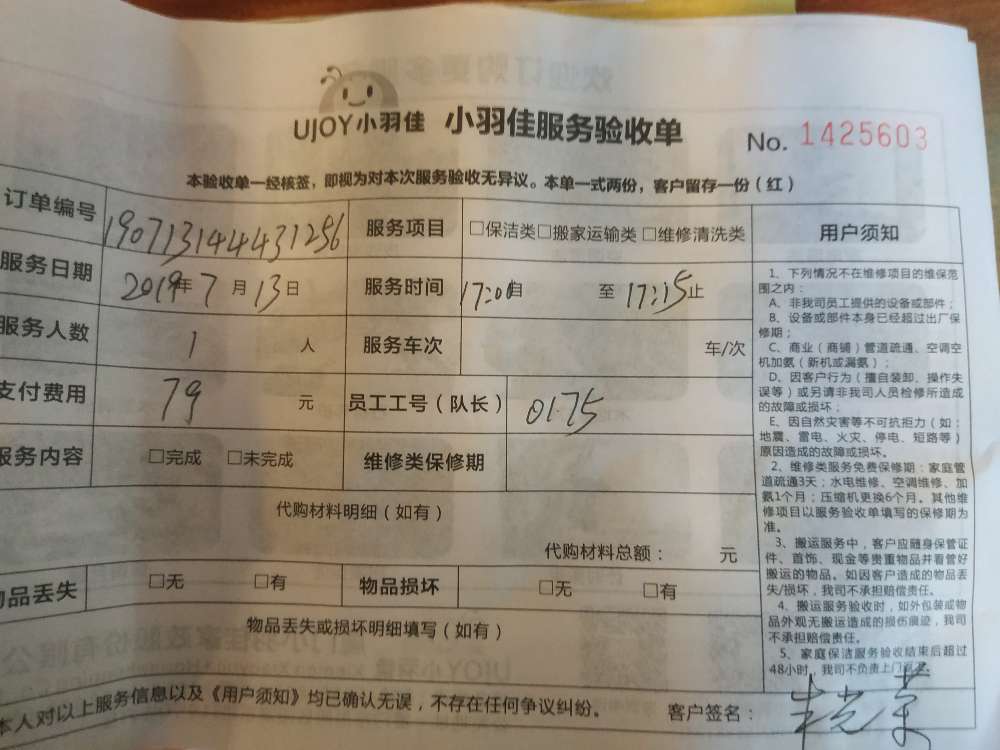 UJOY小羽佳 小羽佳服务验收单 No. 1425603
本验收单一经核签，即视为对本次服务验收无异议。本单一式两份，客户留存一份（红）
订单编号 190713144431256 服务项目 □保洁类□搬家运输类□维修清洗类 用户须知
服务日期 2019年7月13日 服务时间 17:00自 至 17:15止
服务人数 1 人 服务车次 车/次
支付费用 79 元 员工工号（队长） 0175
服务内容 □完成 □未完成 维修类保修期
代购材料明细（如有）
代购材料总额： 元
物品丢失 □无 □有 物品损坏 □无 □有
物品丢失或损坏明细填写（如有）
1、下列情况不在维修项目的维保范
围之内：
A、非我司员工提供的设备或部件；
B、设备或部件本身已经超过出厂保
修期；
C、商业（商铺）管道疏通、空调空
机加氨（新机或漏氨）；
D、因客户行为（擅自装卸、操作失
误等）或另请非我司人员检修所造成
的故障或损坏；
E、因自然灾害等不可抗拒力（如：
地震、雷电、火灾、停电、短路等）
原因造成的故障或损坏。
2、维修类服务免费保修期：家庭管
道疏通3天；水电维修、空调维修、加
氨1个月；压缩机更换6个月。其他维
修项目以服务验收单填写的保修期为
准。
3、搬运服务中，客户应随身保管证
件、首饰、现金等贵重物品并看管好
搬运的物品。如因客户造成的物品丢
失/损坏，我司不承担赔偿责任。
4、搬运服务验收时，如外包装或物
品外观无搬运造成的损伤痕迹，我司
不承担赔偿责任。
5、家庭保洁服务验收结束后超过
48小时，我司不负责上门
本人对以上服务信息以及《用户须知》均已确认无误，不存在任何争议纠纷。 客户签名：